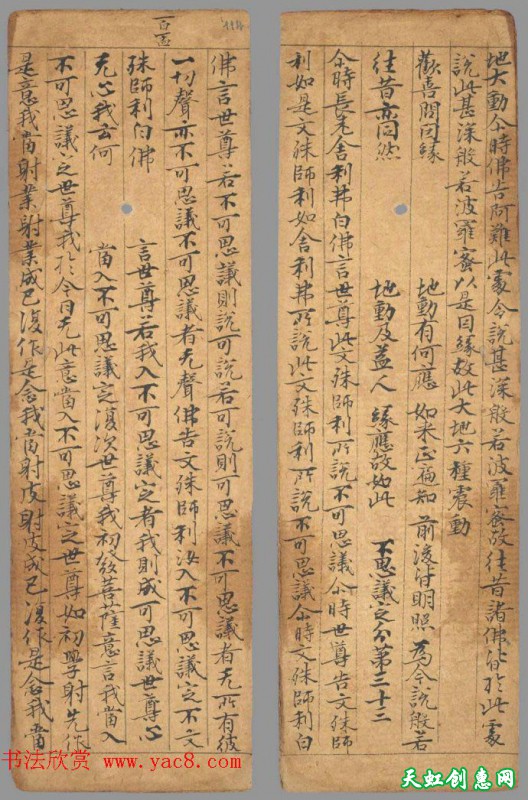 地大動尒時佛告阿難此處今說甚深般若波羅蜜故往昔諸佛皆於此處
說此甚深般若波羅蜜以是因緣故此大地六種震動
歡喜問因緣 地動有何應 如来正遍知 前後皆明照 為今說般若
往昔亦同然 地動及蓋人 緣應故如此 不思議定分第三十二
尒時長老舍利弗白佛言世尊此文殊師利所說不可思議尒時世尊告文殊師
利如是文殊師利如舍利弗所說此文殊師利所說不可思議尒時文殊師利白
佛言世尊若不可思議則說可說若可說則可思議不可思議者无所有彼
一切聲亦不可思議不可思議者无聲佛告文殊師利汝入不可思議定不文
殊師利白佛 言世尊若我入不可思議定者我則成可思議世尊心
无心我云何 當入不可思議定復次世尊我初發菩薩意言我當入
不可思議定世尊我於今日无此意當入不可思議定世尊如初學射先作
是意我當射業射業成已復作是念我當射皮射皮成已復作是念我當
书法欣赏 www.yac8.com
天虹创意网